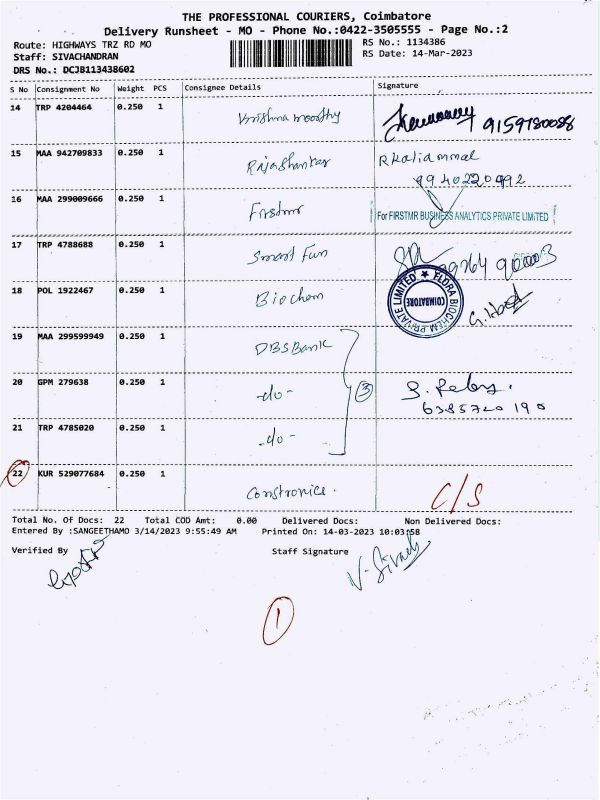 THE PROFESSIONAL COURIERS, Coimbatore
Delivery Runsheet - MO - Phone No.:0422-3505555 - Page No.:2
Route: HIGHWAYS TRZ RD MO RS No.: 1134386
Staff: SIVACHANDRAN RS Date: 14-Mar-2023
DRS No.: DCJB113438602
S No Consignment No Weight PCS Consignee Details Signature
14 TRP 4204464 0.250 1 Krishna moorthy 9159780088
15 MAA 942709833 0.250 1 Rajashankar R kaliammal
9940220992
16 MAA 299009666 0.250 1 Firstmr For FIRSTMR BUSINESS ANALYTICS PRIVATE LIMITED
17 TRP 4788688 0.250 1 Smart Fun
18 POL 1922467 0.250 1 Biochem FLORA BIOCHEM PRIVATE LIMITED ★ COIMBATORE
19 MAA 299599949 0.250 1 DBS Bank
20 GPM 279638 0.250 1 -do- 3
6385720 190
21 TRP 4785020 0.250 1 -do-
22 KUR 529077684 0.250 1 Constronics. C/S
Total No. Of Docs: 22 Total COD Amt: 0.00 Delivered Docs: Non Delivered Docs:
Entered By :SANGEETHAMO 3/14/2023 9:55:49 AM Printed On: 14-03-2023 10:03:58
Verified By Staff Signature
1